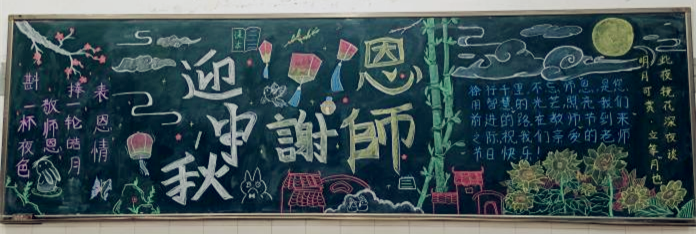 斟一杯夜色
敬师恩
捧一轮皓月
表恩情
迎中秋
恩
謝師
千里不忘师恩,是您
用智慧的光芒照亮我们
前进的路,在教师节到来
之际,祝我们亲爱的老师
节日快乐!
此夜花深夜
明月可赏,立月也